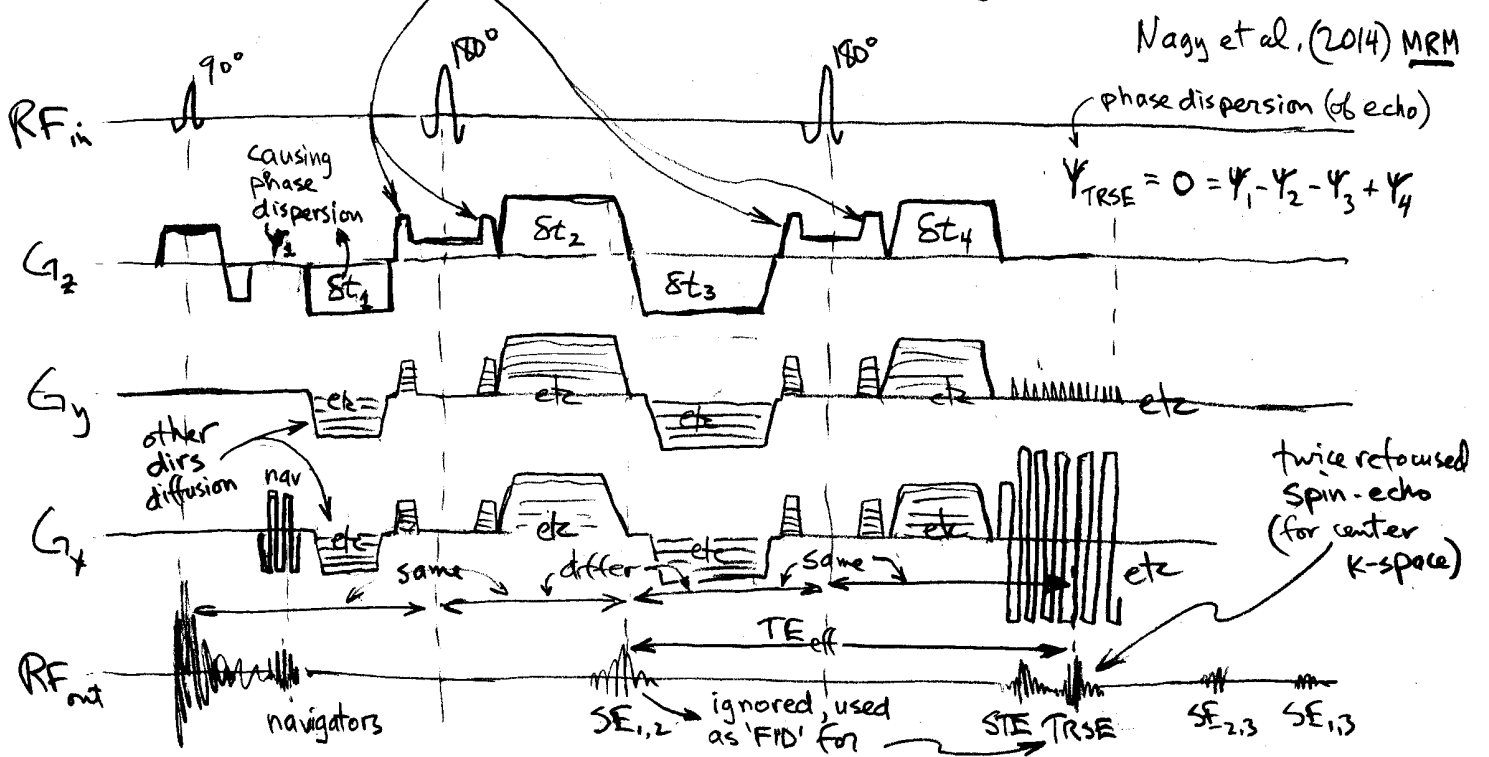 Nagy et al. (2014) MRM
90°
180°
180°
RFin
phase dispersion (of echo)
ΨTRSE = 0 = Ψ1 - Ψ2 - Ψ3 + Ψ4
causing
phase
dispersion
Ψ1
Gz
δt1
δt2
δt3
δt4
Gy
etc
etc
etc
etc
etc
other
dirs
diffusion
nav
Gx
etc
etc
etc
etc
etc
same
differ
same
twice refocused
spin-echo
(for center
k-space)
TEeff
RFout
navigators
SE1,2
ignored, used
as 'FID' for
STE
TRSE
SE2,3
SE1,3